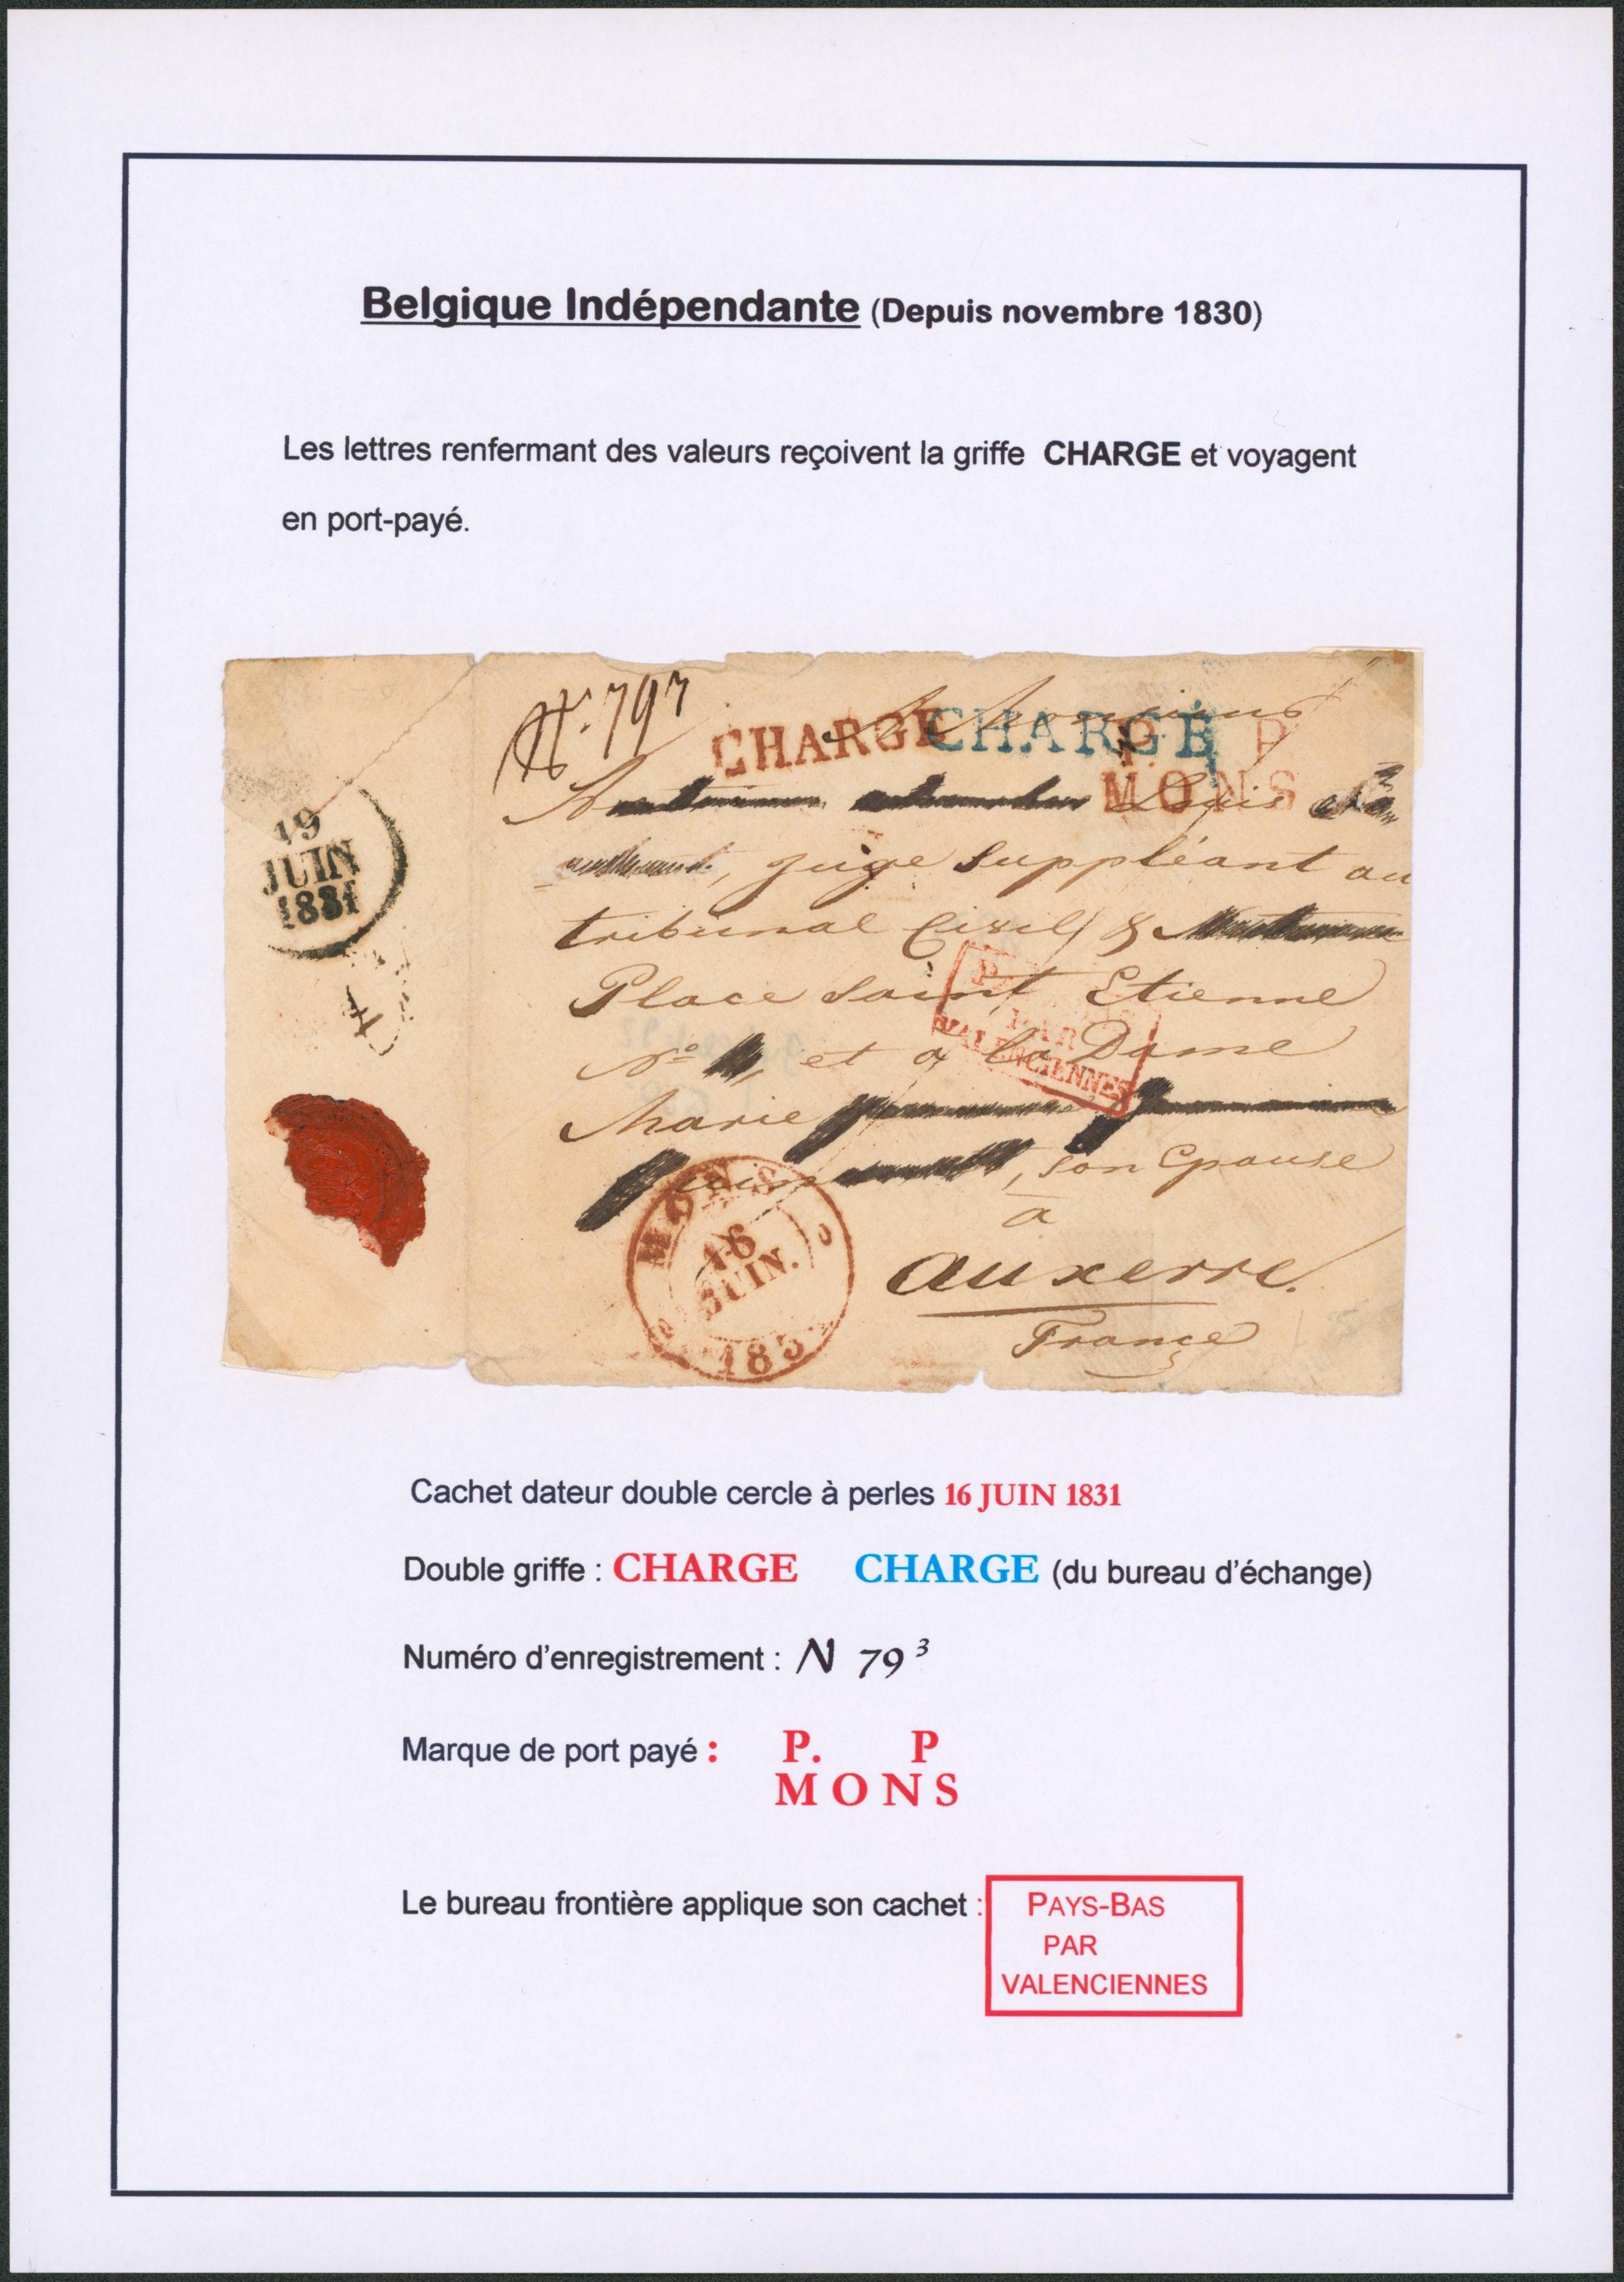 Belgique Indépendante (Depuis novembre 1830)
Les lettres renfermant des valeurs reçoivent la griffe CHARGE et voyagent
en port-payé.
N.° 79³
CHARGE CHARGÉ
P. P
MONS
Louis
, juge suppléant au
tribunal Civil &
Place Saint Etienne
N°, et à la Dame
Marie
, son Epouse
à
Auxerre.
France
19
JUIN
1831
PAR
VALENCIENNES
MONS
16
JUIN.
183
Cachet dateur double cercle à perles 16 JUIN 1831
Double griffe : CHARGE CHARGE (du bureau d'échange)
Numéro d'enregistrement : N 79³
Marque de port payé : P. P
MONS
Le bureau frontière applique son cachet : PAYS-BAS
PAR
VALENCIENNES